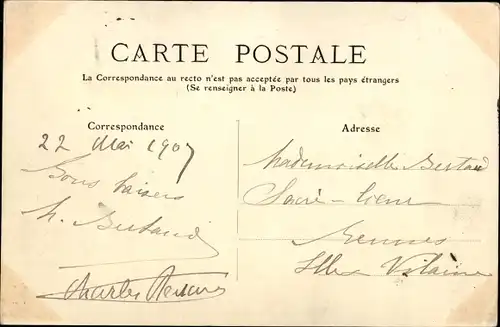 CARTE POSTALE
La Correspondance au recto n'est pas acceptée par tous les pays étrangers
(Se renseigner à la Poste)
Correspondance
22 Mai 1907
Bons baisers
Charles
Adresse
Mademoiselle Bertaud
Sacré-Cœur
Rennes
Ille & Vilaine